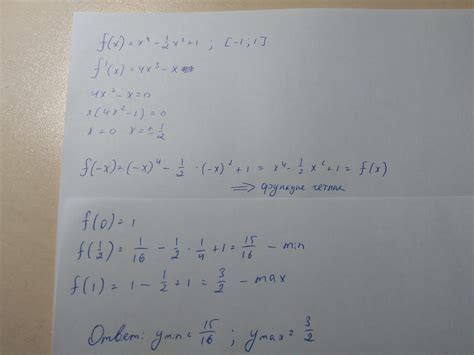 f(x) = x⁴ - 1/2 x² + 1 ; [-1; 1]
f'(x) = 4x³ - x
4x³ - x = 0
x(4x² - 1) = 0
x = 0 x = ± 1/2
f(-x) = (-x)⁴ - 1/2 · (-x)² + 1 = x⁴ - 1/2 x² + 1 = f(x)
⇒ функция четная
f(0) = 1
f(1/2) = 1/16 - 1/2 · 1/4 + 1 = 15/16 - min
f(1) = 1 - 1/2 + 1 = 3/2 - max
Ответ: y min = 15/16 ; y max = 3/2